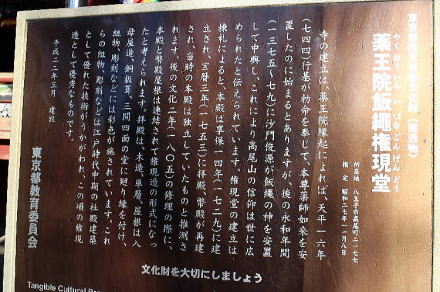 東京都指定有形文化財（建造物）
やくおういんいづなごんげんどう
薬王院飯縄権現堂
所在地 八王子市高尾町二一七七
指定 昭和二七年一一月八日
寺の建立は、薬王院縁起によれば、天平一六年
（七四四）行基が勅命を奉じて、本尊薬師如来を安
置したのに始まるとありますが、後の永和年間
（一三七五～七九）に沙門俊源が飯縄の神を安置
して中興し、これにより高尾山の信仰は世に広
められたと伝えられています。権現堂の建立は
棟札によると、本殿は享保一四年（一七二九）に建
立され、宝暦三年（一七五三）に拝殿、幣殿が再建
され、当時の本殿は独立していたものと推測さ
れます。後の文化二年（一八〇五）の修理の際に、
本殿と幣殿屋根は連結されて権現造の形式になっ
たと考えられます。拝殿は、木造、単層、屋根は入
母屋造、銅板葺、三間四面の堂に廻り縁を付け、
組物、彫刻などには彩色が施されています。これ
らの組物、彫刻などは江戸時代中期の社殿建築
として優れた技術がうかがわれ、この頃の権現
造として優秀なものです。
平成二三年三月 建設
東京都教育委員会
文化財を大切にしましょう
Tangible Cultural